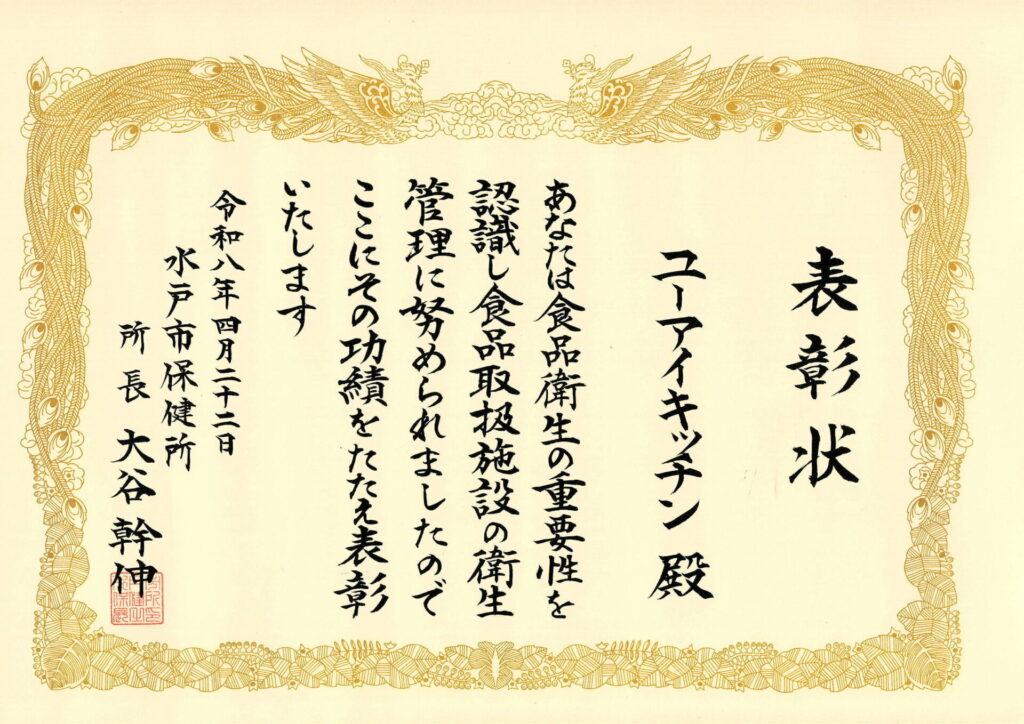 表彰状
ユーアイキッチン 殿
あなたは食品衛生の重要性を
認識し食品取扱施設の衛生
管理に努められましたので
ここにその功績をたたえ表彰
いたします
令和八年四月二十二日
水戸市保健所
所長 大谷幹伸